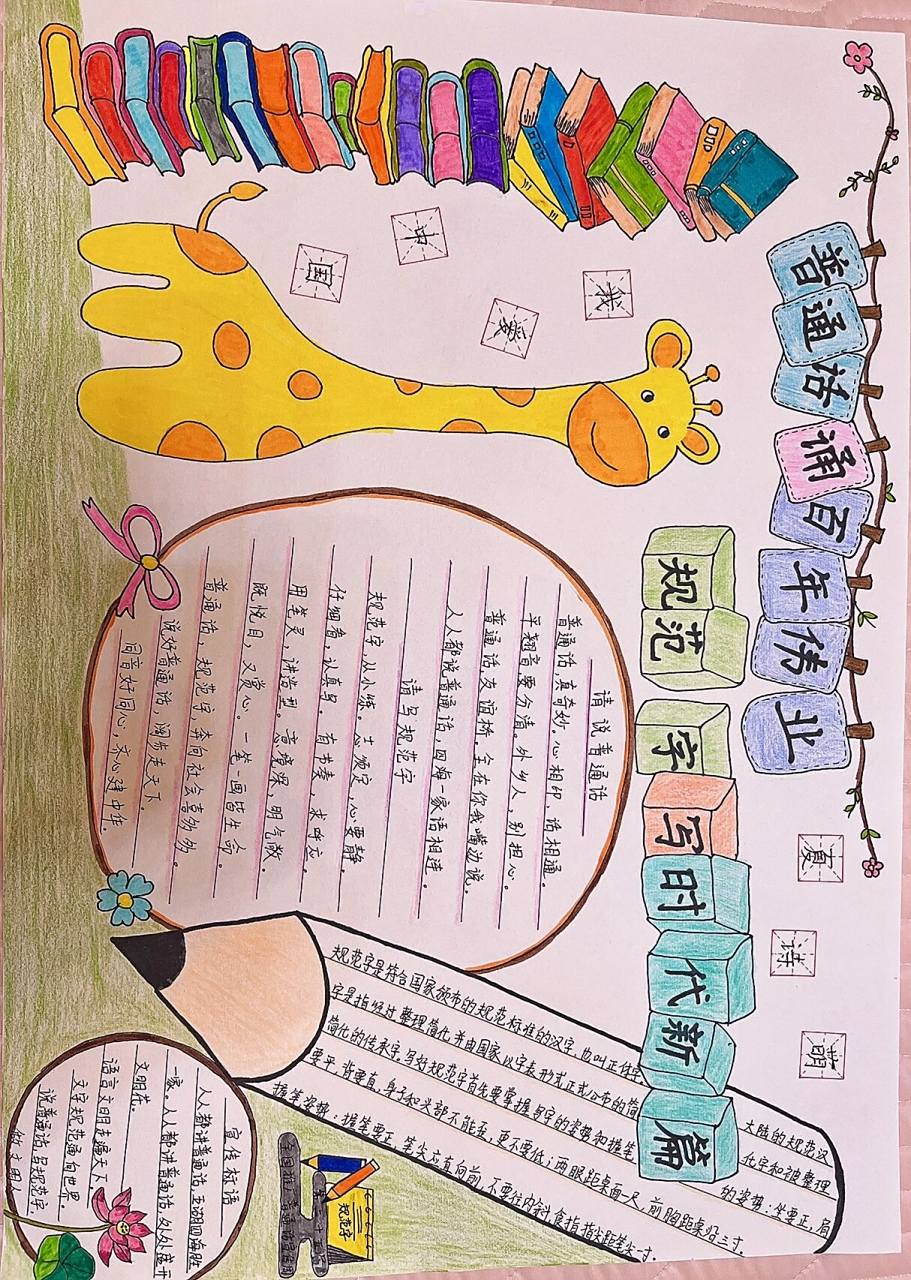 普通话诵百年伟业
规范字写时代新篇
我爱中国
夏诗萌
请说普通话
普通话,真奇妙。心相印,话相通。
平翘音要分清。外乡人,别担心。
普通话友谊桥。全在你我嘴边说。
人人都说普通话。四海一家话相连。
请写规范字
规范字从小练。士颂定,心要静。
仔细看,认真写。有书奏,求呼应。
用笔灵,讲造型。意境深,明气敞。
既悦目,又赏心。一笔一画皆生命。
普通话,规范字,奔向社会喜匆匆。
说好普通话,阔步走天下
同音好同心,齐心建中华。
规范字是符合国家颁布的规范标准的汉字,也叫正体字,大陆的规范汉
字是指经过整理简化并由国家以字表形式正式公布的简化字和被整理
简化的传承字。写好规范字首先要掌握写字的姿势和握笔的姿势:坐要正,肩
要平,背要直,身子和头部不能歪,更不要低;两眼距桌面一尺,前胸距桌沿三寸。
握笔姿势:握笔要正,笔尖应直向前,不要往内斜食指指尖距笔尖一寸。
宣传标语
人人都讲普通话,五湖四海胜
一家。人人都讲普通话,处处盛开
文明花。
语言文明走遍天下
文字规范通向世界。
说普通话写规范字,
做文明人
规范字